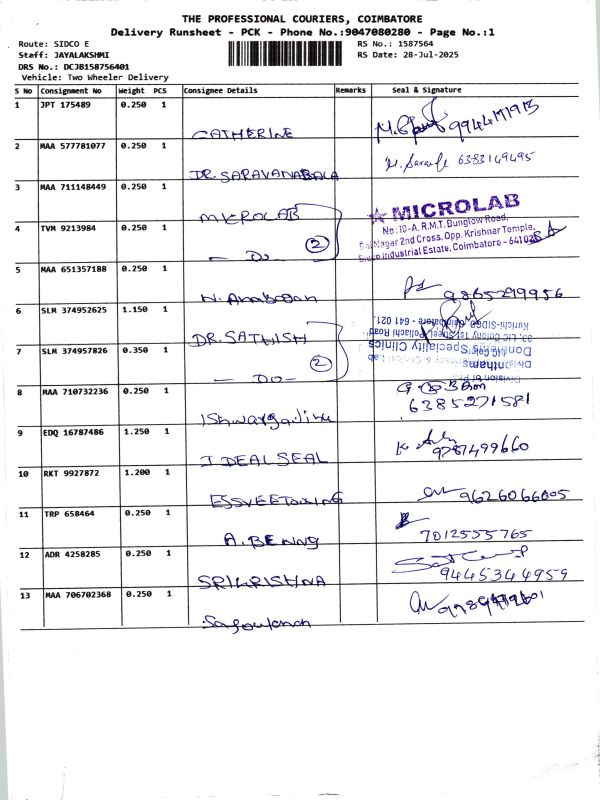 THE PROFESSIONAL COURIERS, COIMBATORE
Delivery Runsheet - PCK - Phone No.:9047080280 - Page No.:1
Route: SIDCO E
RS No.: 1587564
Staff: JAYALAKSHMI
RS Date: 28-Jul-2025
DRS No.: DCJB158756401
Vehicle: Two Wheeler Delivery
S No Consignment No Weight PCS Consignee Details Remarks Seal & Signature
1 JPT 175489 0.250 1 CATHERINE
2 MAA 577781077 0.250 1 DR. SARAVANABALA 6383149495
3 MAA 711148449 0.250 1 MICROLAB
★ MICROLAB
No:10-A, R.M.T. Bunglow Road,
Nagar 2nd Cross, Opp. Krishnar Temple,
Industrial Estate, Coimbatore - 641021
4 TVM 9213984 0.250 1 - Do - 2
5 MAA 651357188 0.250 1 9865299956
6 SLM 374952625 1.150 1 DR. SATHISH
33, LIC Colony 1st Street, Pollachi Road
Kurichi-SIDCO, Coimbatore - 641 021.
7 SLM 374957826 0.350 1 - DO - 2
Speciality Clinics
8 MAA 710732236 0.250 1 6385271581
9 EDQ 16787486 1.250 1 IDEAL SEAL 9787499660
10 RKT 9927872 1.200 1 9626066005
11 TRP 658464 0.250 1 A. BENNY 7012555765
12 ADR 4258285 0.250 1 SRIKRISHNA 9445344959
13 MAA 706702368 0.250 1